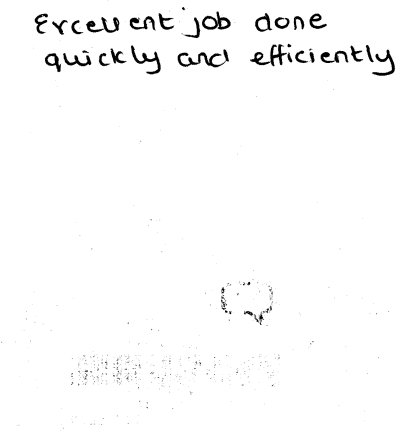 Excellent job done
quickly and efficiently